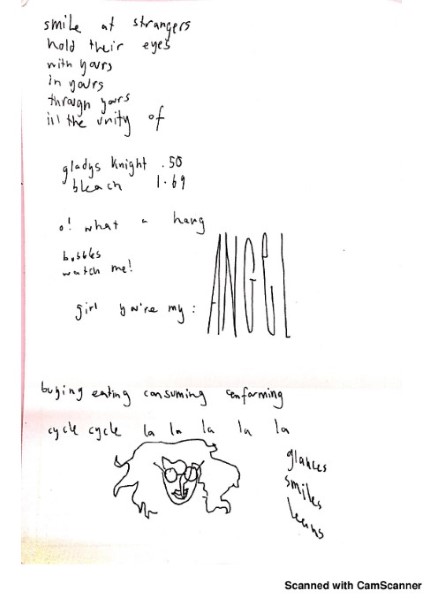 smile at strangers
hold their eyes
with yours
in yours
through yours
in the unity of
gladys knight .50
bleach 1.69
o! what a hang
bubbles
watch me!
girl you're my: ANGEL
buying eating consuming conforming
cycle cycle la la la la la
glances
smiles
leans
Scanned with CamScanner